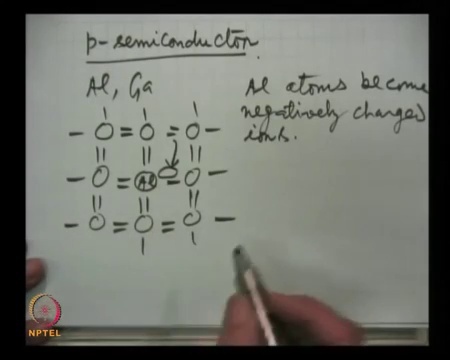 p-semiconductor
Al, Ga
Al atoms become
negatively charged
ions.
Al
NPTEL